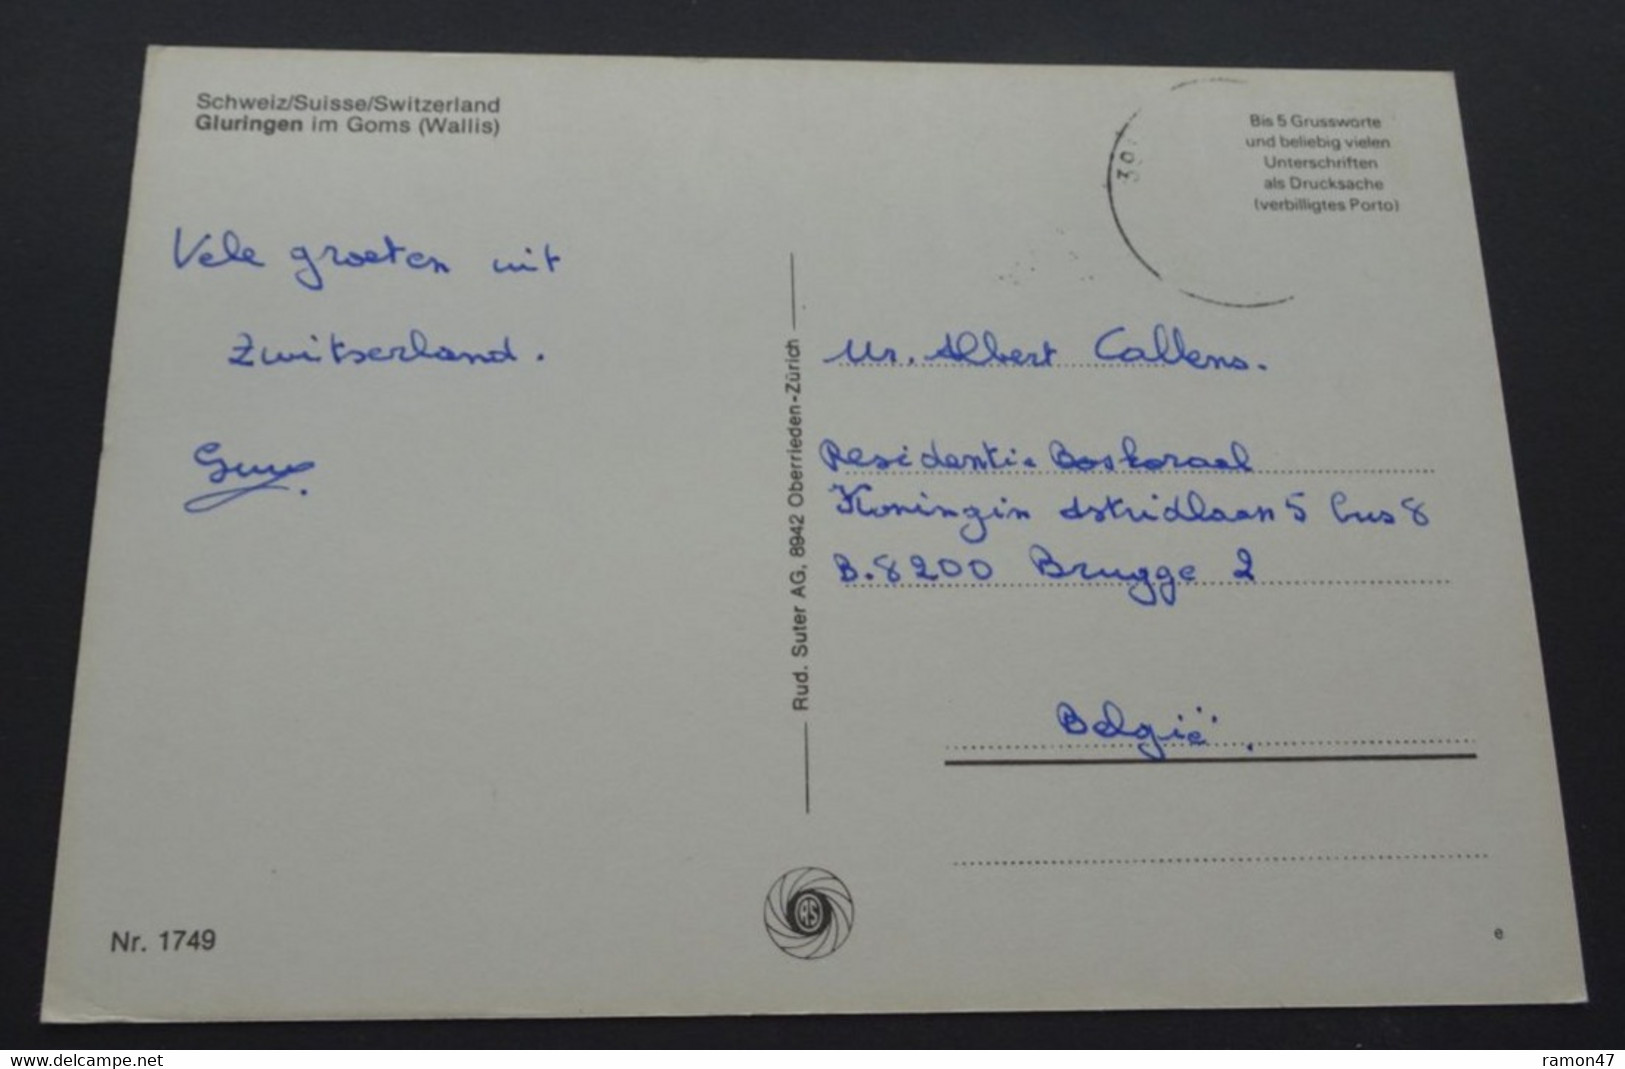 Schweiz/Suisse/Switzerland
Gluringen im Goms (Wallis)
Bis 5 Grussworte
und beliebig vielen
Unterschriften
als Drucksache
(verbilligtes Porto)
30
Vele groeten uit
Zwitserland.
Rud. Suter AG, 8942 Oberrieden-Zürich
Mr. Albert Callens.
Residentie Boskoraal
Koningin Astridlaan 5 bus 8
B.8200 Brugge 2
België.
Nr. 1749
RS
e
www.delcampe.net
ramon47